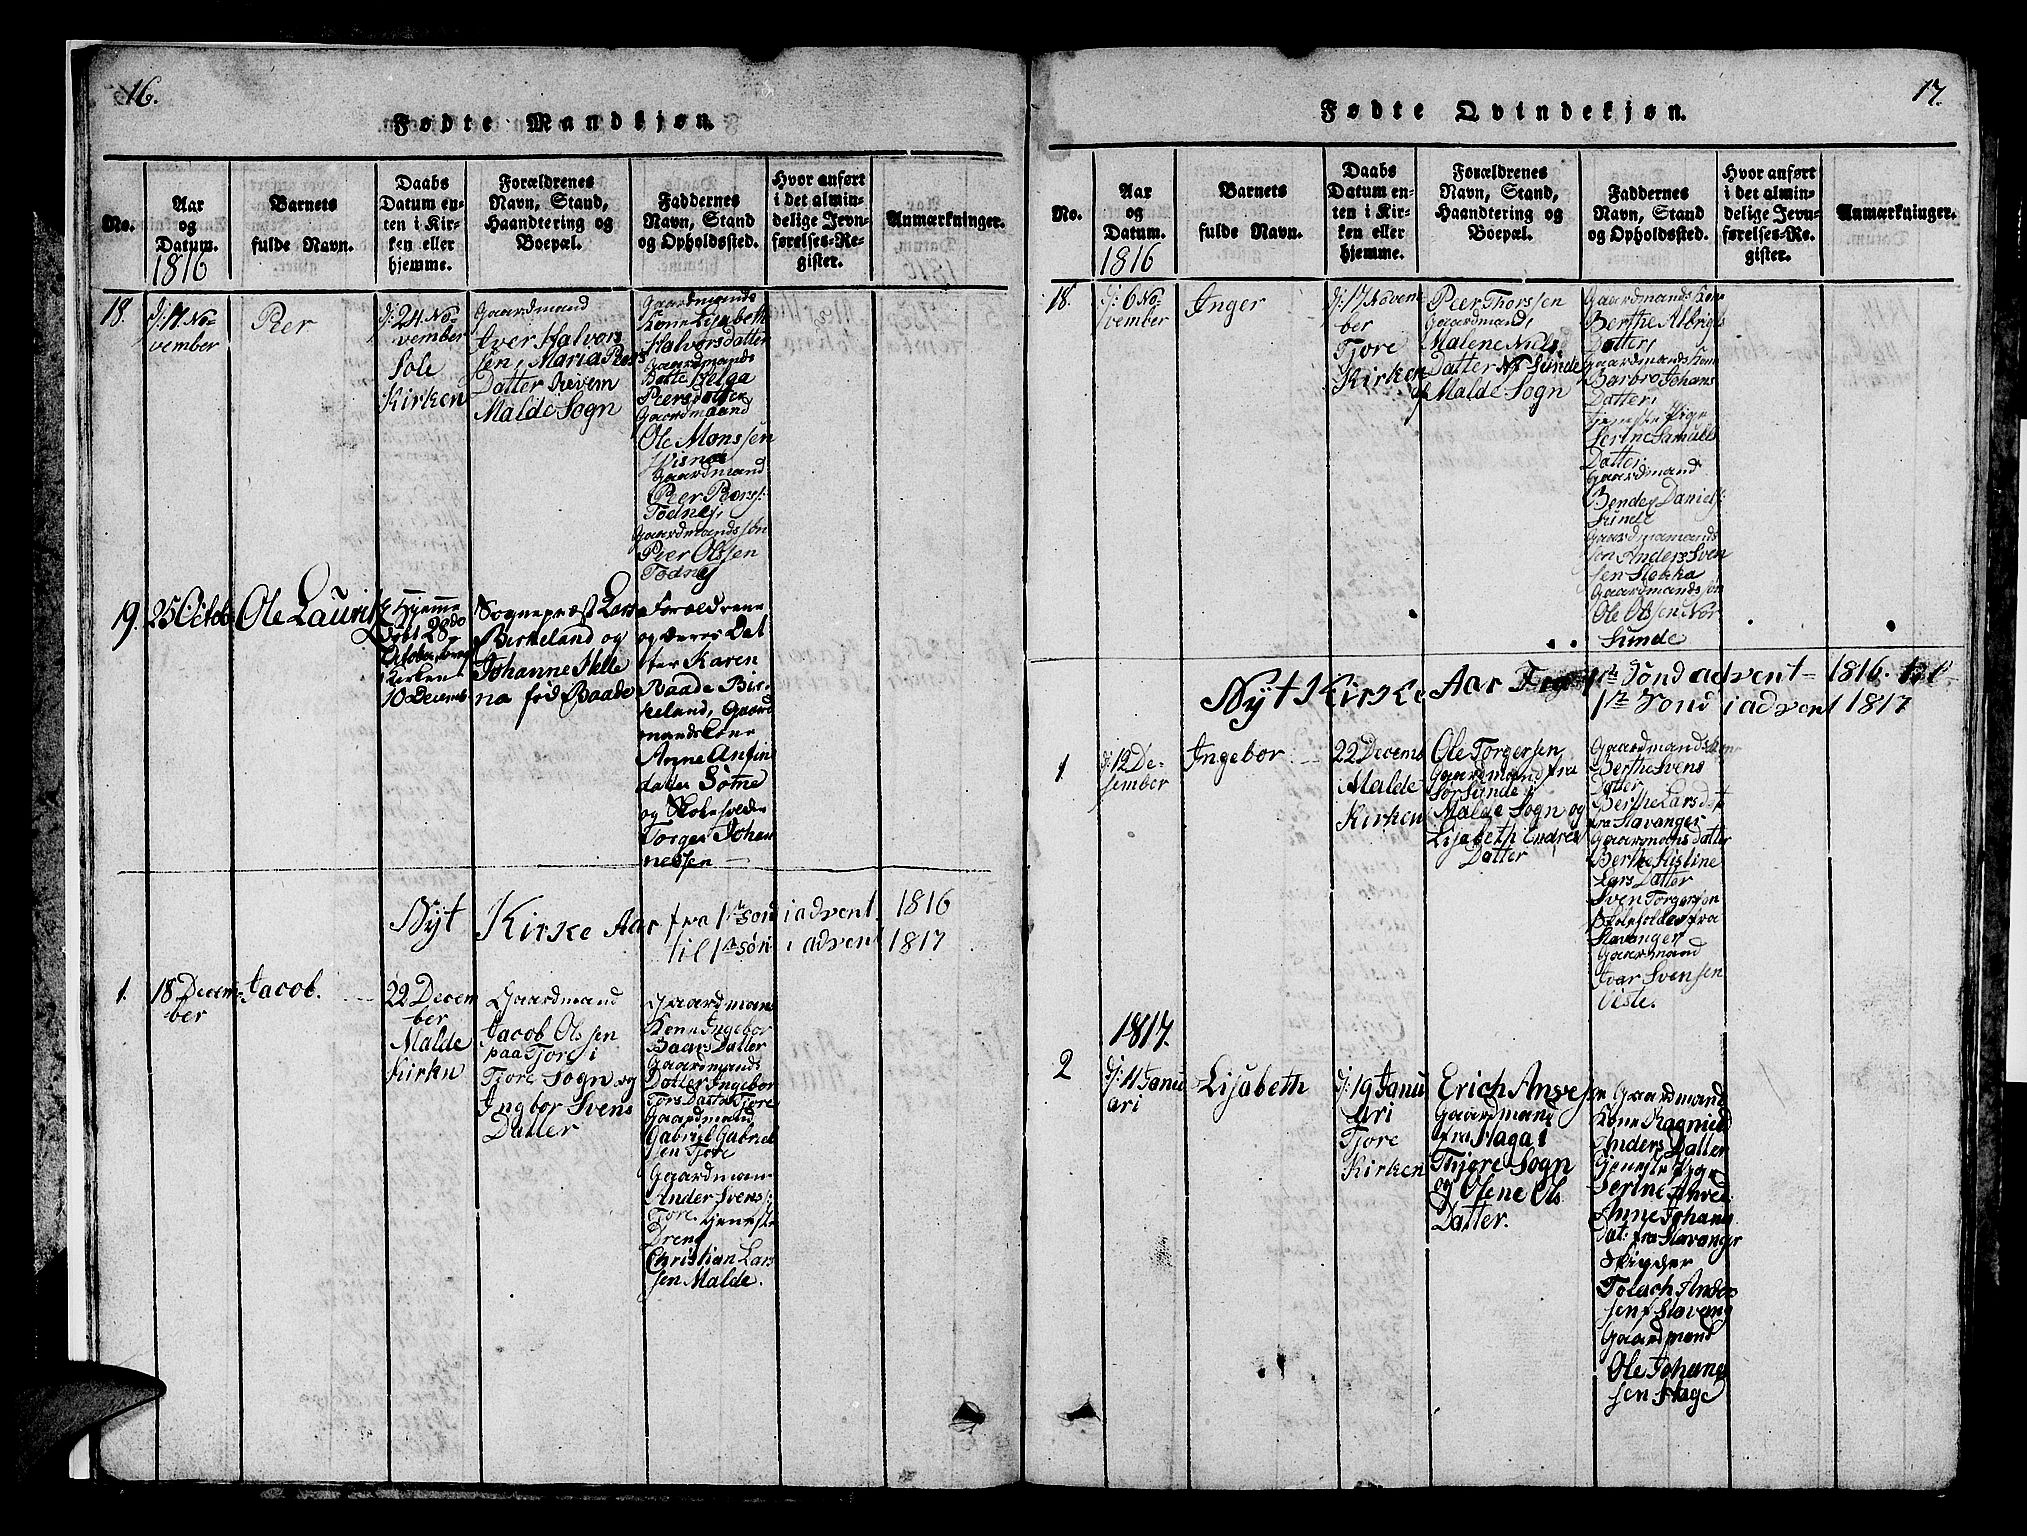 16.
Fødte Mandkjøn.
No.
Aar
og
Datum.
1816
Barnets
fulde Navn.
Daabs
Datum en-
ten i Kir-
ken eller
hjemme.
Forældrenes
Navn, Stand,
Haandtering og
Boepæl.
Faddernes
Navn, Stand
og Opholdssted.
Hvor anført
i det almin-
delige Jevn-
førelses-Re-
gister.
Anmærkninger.
18.
d: 17 No-
vember
Peer
d: 24 No-
vember
Sole
Kirken
Gaardmand
Iver Halvors
sen, Maria Peers
Datter
Malde Sogn
Gaardmands
Kone Lisabeth
Halvorsdatter
Gaardmands
Helga
Peersdatter
Gaardmaand
Ole Monssen
Gaardmand
Peer Peers:
Todnes,
Gaardmandssøn
Peer Olssen
Todnes
19.
25 Octob
Ole Laurits
Hjemme
døbt 28de
October
Kirken
10 Decemb
Sognepræst Lars
Birkeland og
Johanne Hele
na fød Baade
Forældrene
og deres Dat
ter Karen
Baade Bir-
keland, Gaard
mands Kone
Anne Anfin
datter Sømme
og Skoleholder
Torger Johan
nessen
Nyt Kirke Aar fra 1ste Sond i advent 1816
til 1ste Søn i advent 1817
1.
18 Decem-
ber
Jacob.
22 Decem
ber
Malde
Kirken
Gaardmand
Jacob Olssen
paa Tjore i
Tjore Sogn og
Ingbor Svens
Datter
Gaardmans
Kone Ingebor
Baars Datter
Gaardmands
Dotter Ingebor
Tors Datter Tjore
Gaardmand
Gabriel Gabriel
sen Tjore
Gaardman
Ander Svens:
Tjore. tjeneste
Dreng
Christian Lars
sen Malde.
17.
Fødte Qvindekjøn.
No.
Aar
og
Datum.
1816
Barnets
fulde Navn.
Daabs
Datum en-
ten i Kir-
ken eller
hjemme.
Forældrenes
Navn, Stand,
Haandtering og
Boepæl.
Faddernes
Navn, Stand
og Opholdssted.
Hvor anført
i det almin-
delige Jevn-
førelses-Re-
gister.
Anmærkninger.
18.
d: 6 No-
vember
Inger
d: 17 Novem
ber
Tjore
Kirken
Peer Thorssen
Gaardmand,
Malene Niels
Datter Sunde
Malde Sogn
Gaardmands Kone
Berthe Albrigts
Datter,
Gaardmands Kone
Barbro Johans
Datter,
tjeneste Pige
Serine Samuels
Datter,
Gaardmand
Daniels:
Sunde
Gaardmamands
søn Anders Sven
sen Stokka
Gaardmandssøn
Ole Olssen Nor
Sunde
Nyt Kirke Aar 1ste Sond advent 1816. til
1ste Sond i advent 1817
1
d: 12 De-
sember
Ingebor
22 Decemb
Malde
Kirken
Ole Torgersen
Gaardmand fra
Sør Sunde i
Malde Sogn og
Lisabeth Endres
Datter
Gaardmands Kone
Berthe Svens
Datter
Berthe Larsdat
fra Stavanger
Gaardmans Datter
Berthe Sistine
Lars Datter
Sven Torgerson
Skoleholder fra
Stavanger
Gaardmand
Ivar Svensen
Viste.
1817.
2
d: 11 Janu
ari
Lisabeth
d: 19 Janu
ari
Tjore
Kirken
Erich
Gaardmand
fra Haga i
Thjore Sogn
og Olene Ols
Datter.
Gaardmand
Kone Ragnild
Anders Datter
tjeneste Pige
Serine
Anne Johans
Dat: fra Stavanger
Tolach Anders
sen f Stavang
Gaardmand
Ole Johanes
sen Hage